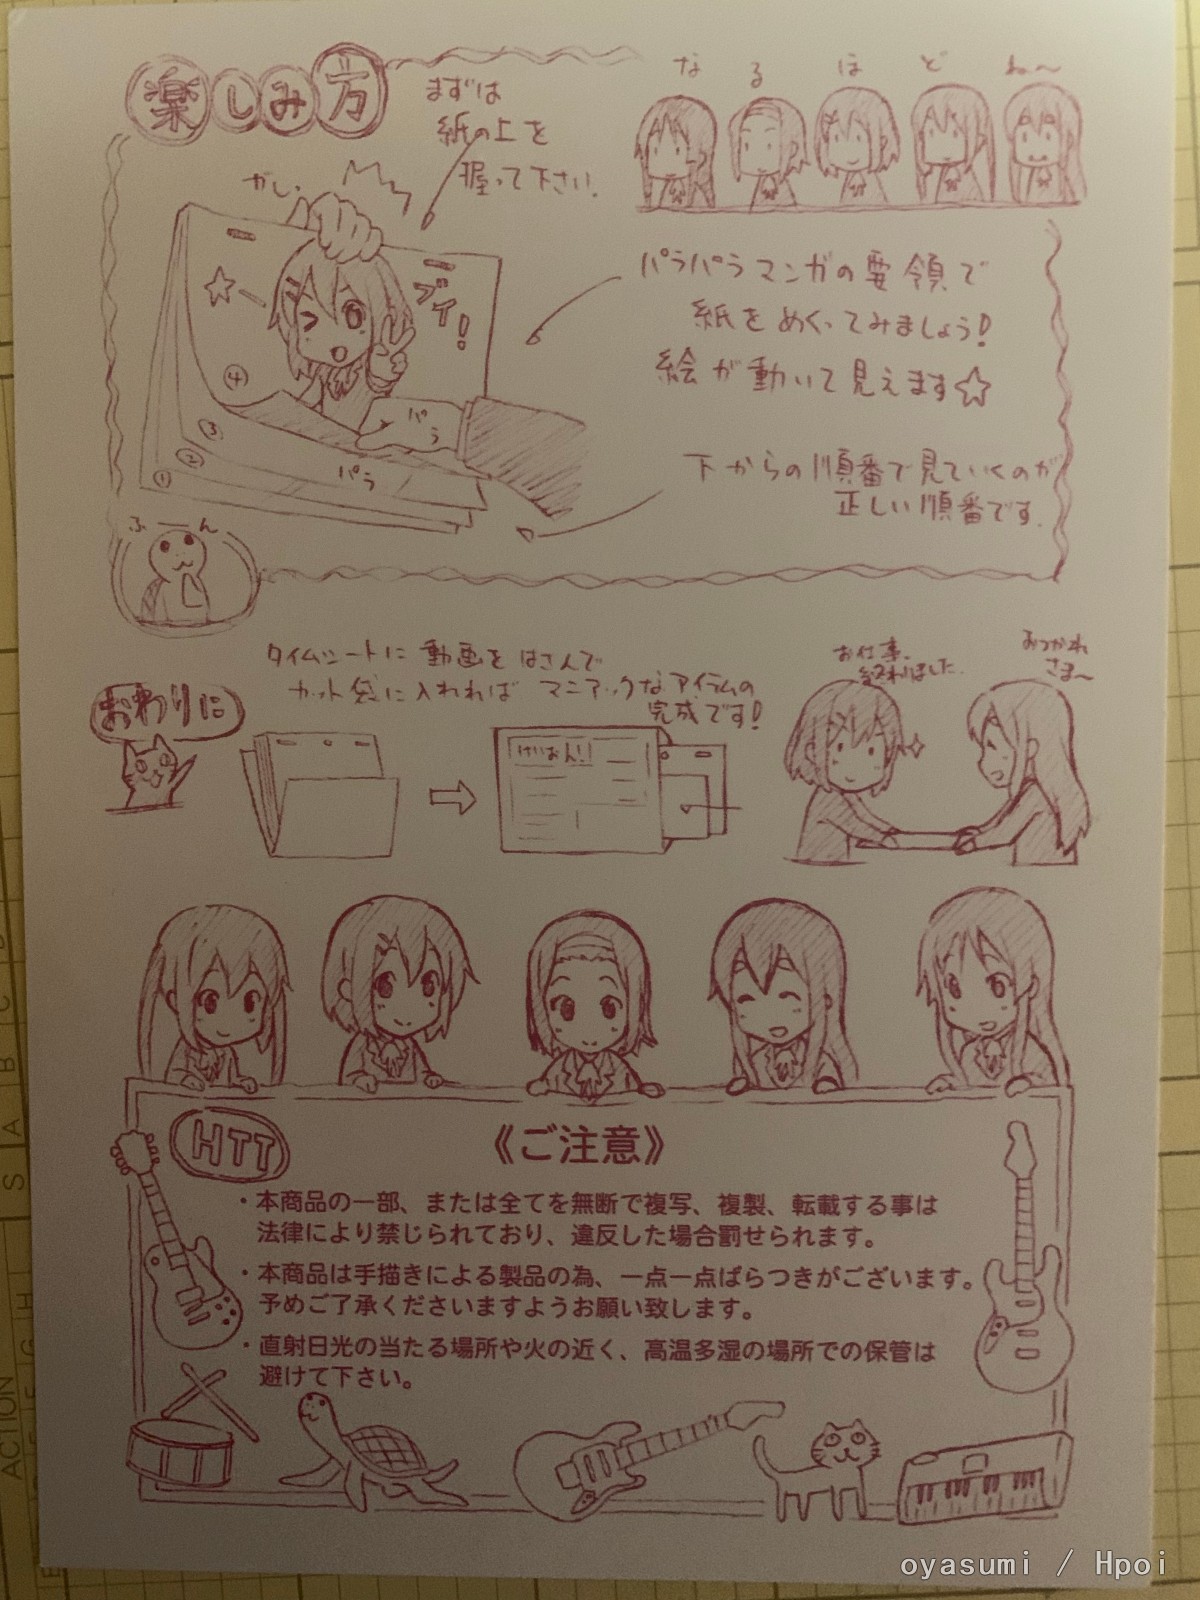 楽しみ方
まずは
紙の上を
握って下さい。
なるほどね〜
ガシッ
ブイ!
パラ
パラ
④
③
②
①
パラパラマンガの要領で
紙をめくってみましょう!
絵が動いて見えます☆
下からの順番で見ていくのが
正しい順番です。
ふーん
おわりに
タイムシートに動画をはさんで
カット袋に入れれば マニアックなアイテムの
完成です!
けいおん!!
お仕事、
終わりました。
おつかれ
さま〜
HTT
《ご注意》
・本商品の一部、または全てを無断で複写、複製、転載する事は
法律により禁じられており、違反した場合罰せられます。
・本商品は手描きによる製品の為、一点一点ばらつきがございます。
予めご了承くださいますようお願い致します。
・直射日光の当たる場所や火の近く、高温多湿の場所での保管は
避けて下さい。
ACTION
S A B C D
oyasumi / Hpoi